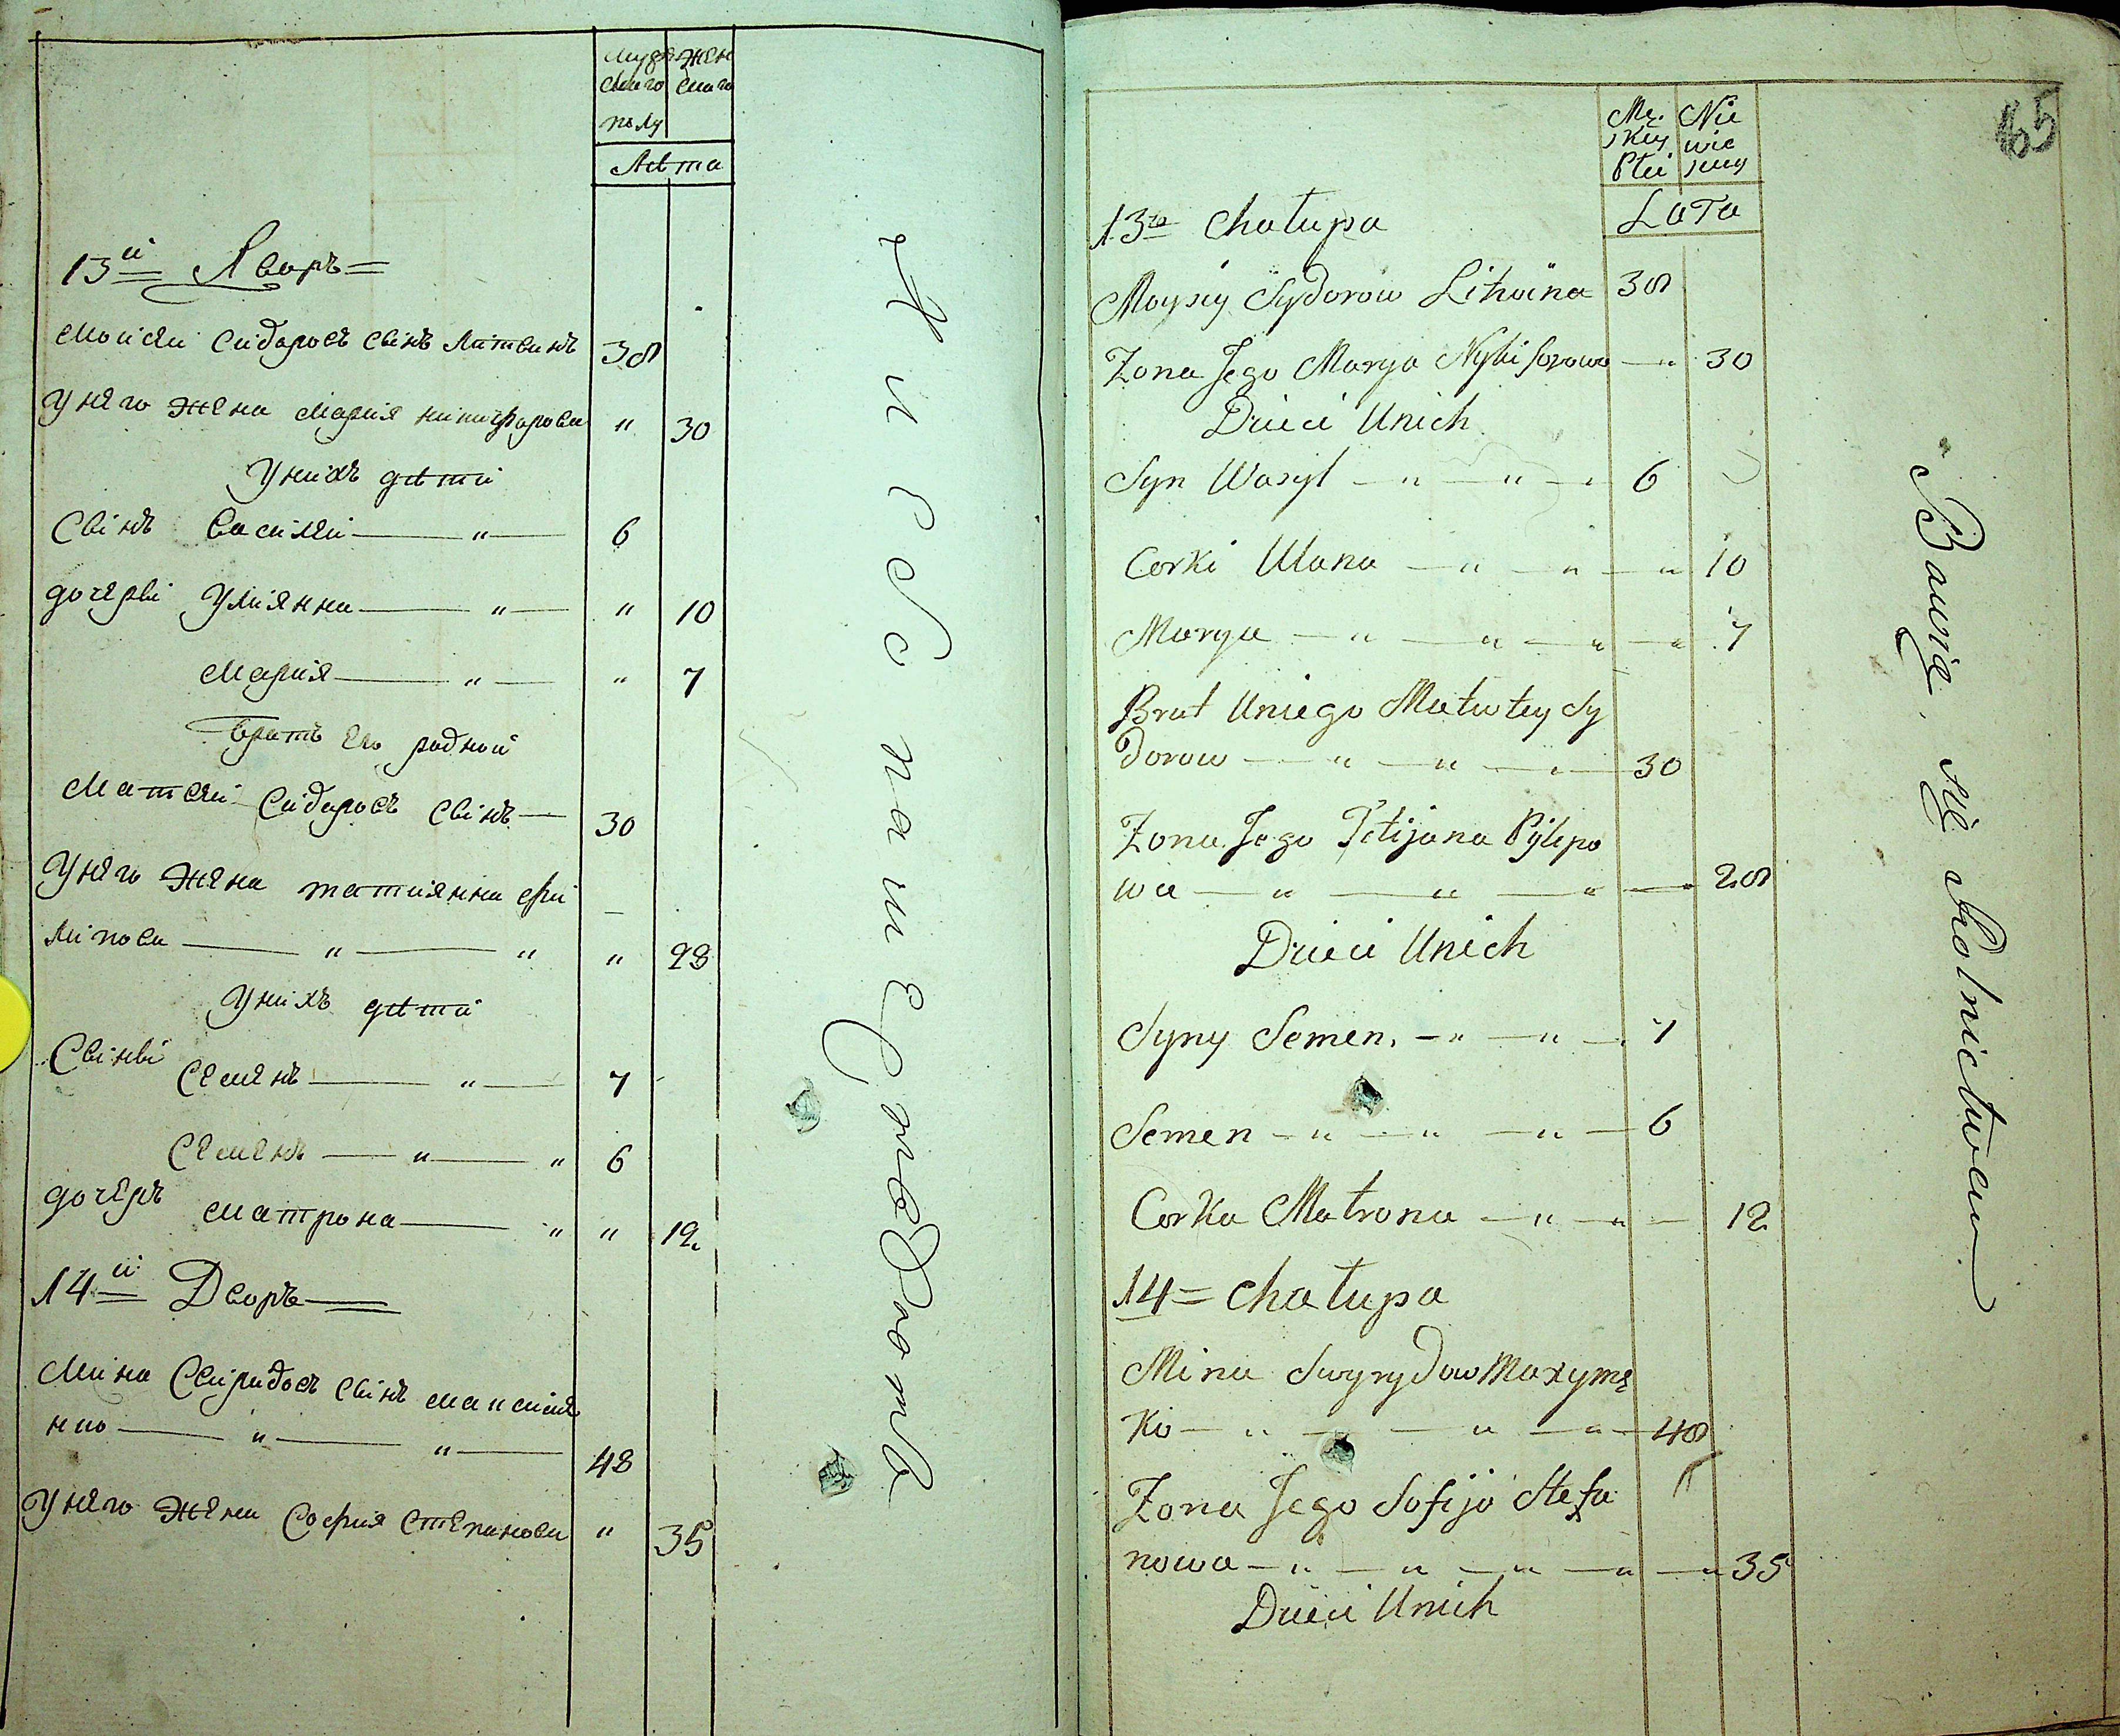 Мужескаго Женскаго
полу
Лѣта
13й Дворъ
Мойсей Сидоровъ Сынъ Литвинъ 38
У него Жена Мария никифорова " 30
У нихъ дѣти
Сынъ Василей — " — 6
дочеры Улиянна — " — " 10
Мария — " — " 7
братъ его родной
Матвей Сидоровъ Сынъ — 30
У него Жена татиянна фи
липова — " — " " 28
У нихъ дѣти
Сыны Семенъ — " — 7
Семенъ — " — " 6
дочеръ матрона — " " 12
14й Дворъ
Мина Свиридовъ Сынъ макси
нко — " — " — 48
У него Жена София Степанова " 35
Mę. Nie
skiy wie
Płci sciey
Lata
65
13ta Chałupa
Moysiy Sydorow Litwina 38
Zona Jego Marya Nykiforowa — " 30
Dzieci Unich
Syn Wasyl — " — " — " 6
Corki Ulana — " — " — " 10
Marya — " — " — " — " 7
Brat Uniego Matwiey Sy
dorow — " — " — " — 30
Zona Jego Tetijana Pylipo
wa — " — " — " — 28
Dzieci Unich
Syny Semen. — " — " — 7
Semen — " — " — " — 6
Corka Matrona — " — " — 12
14 = Chałupa
Mina Swyrydow Maxymę
ko — " — " — " — 48
Zona Jego Sofija Stefa
nowa — " — " — " — " — " 35
Dzieci Unich
Bawią się Rolnictwem